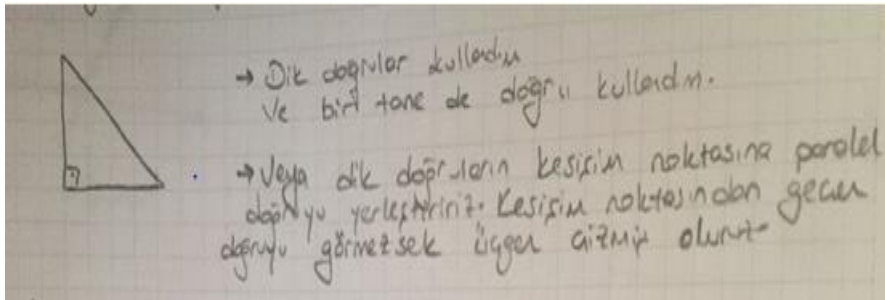 → Dik doğrular kullandım
Ve bir tane de doğru kullandım.
→ Veya dik doğruların kesişim noktasına paralel
doğruyu yerleştiririz. Kesişim noktasından geçen
doğruyu görmezsek üçgen çizmiş oluruz.